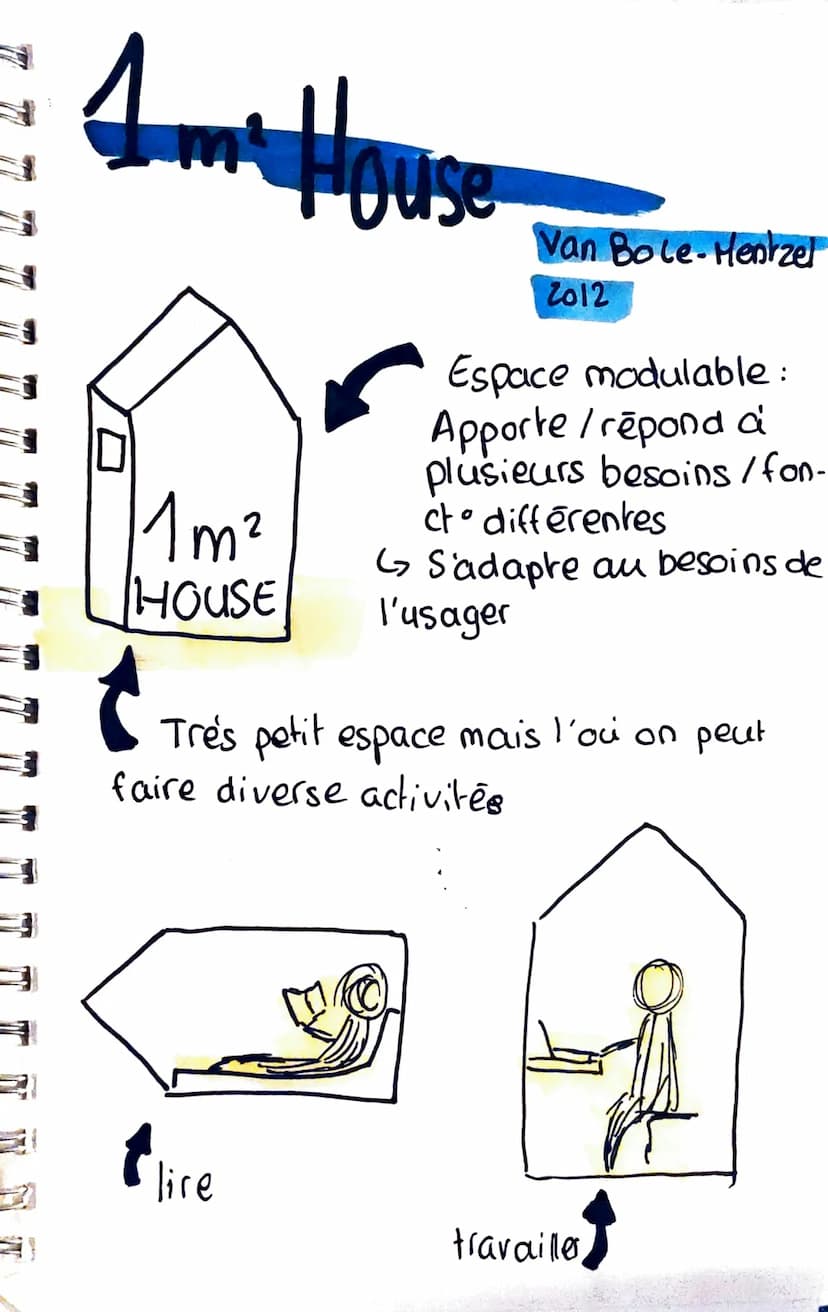 1 m² House
Van Bole-Mentzel
2012
Espace modulable :
Apporte / répond à
plusieurs besoins / fon-
ct° différentes
↳ S'adapte au besoins de
l'usager
1m²
HOUSE
Très petit espace mais l'où on peut
faire diverse activités
lire
travailler